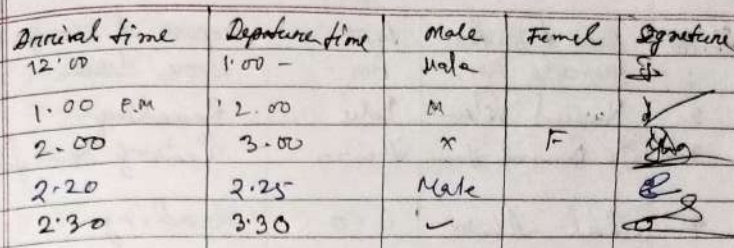 Arrival time Depature time Male Femel Sgnature
12.00 1.00 - Mala
1.00 P.M 2.00 M
2.00 3.00 x F
2.20 2.25 Male
2.30 3.30 ✓